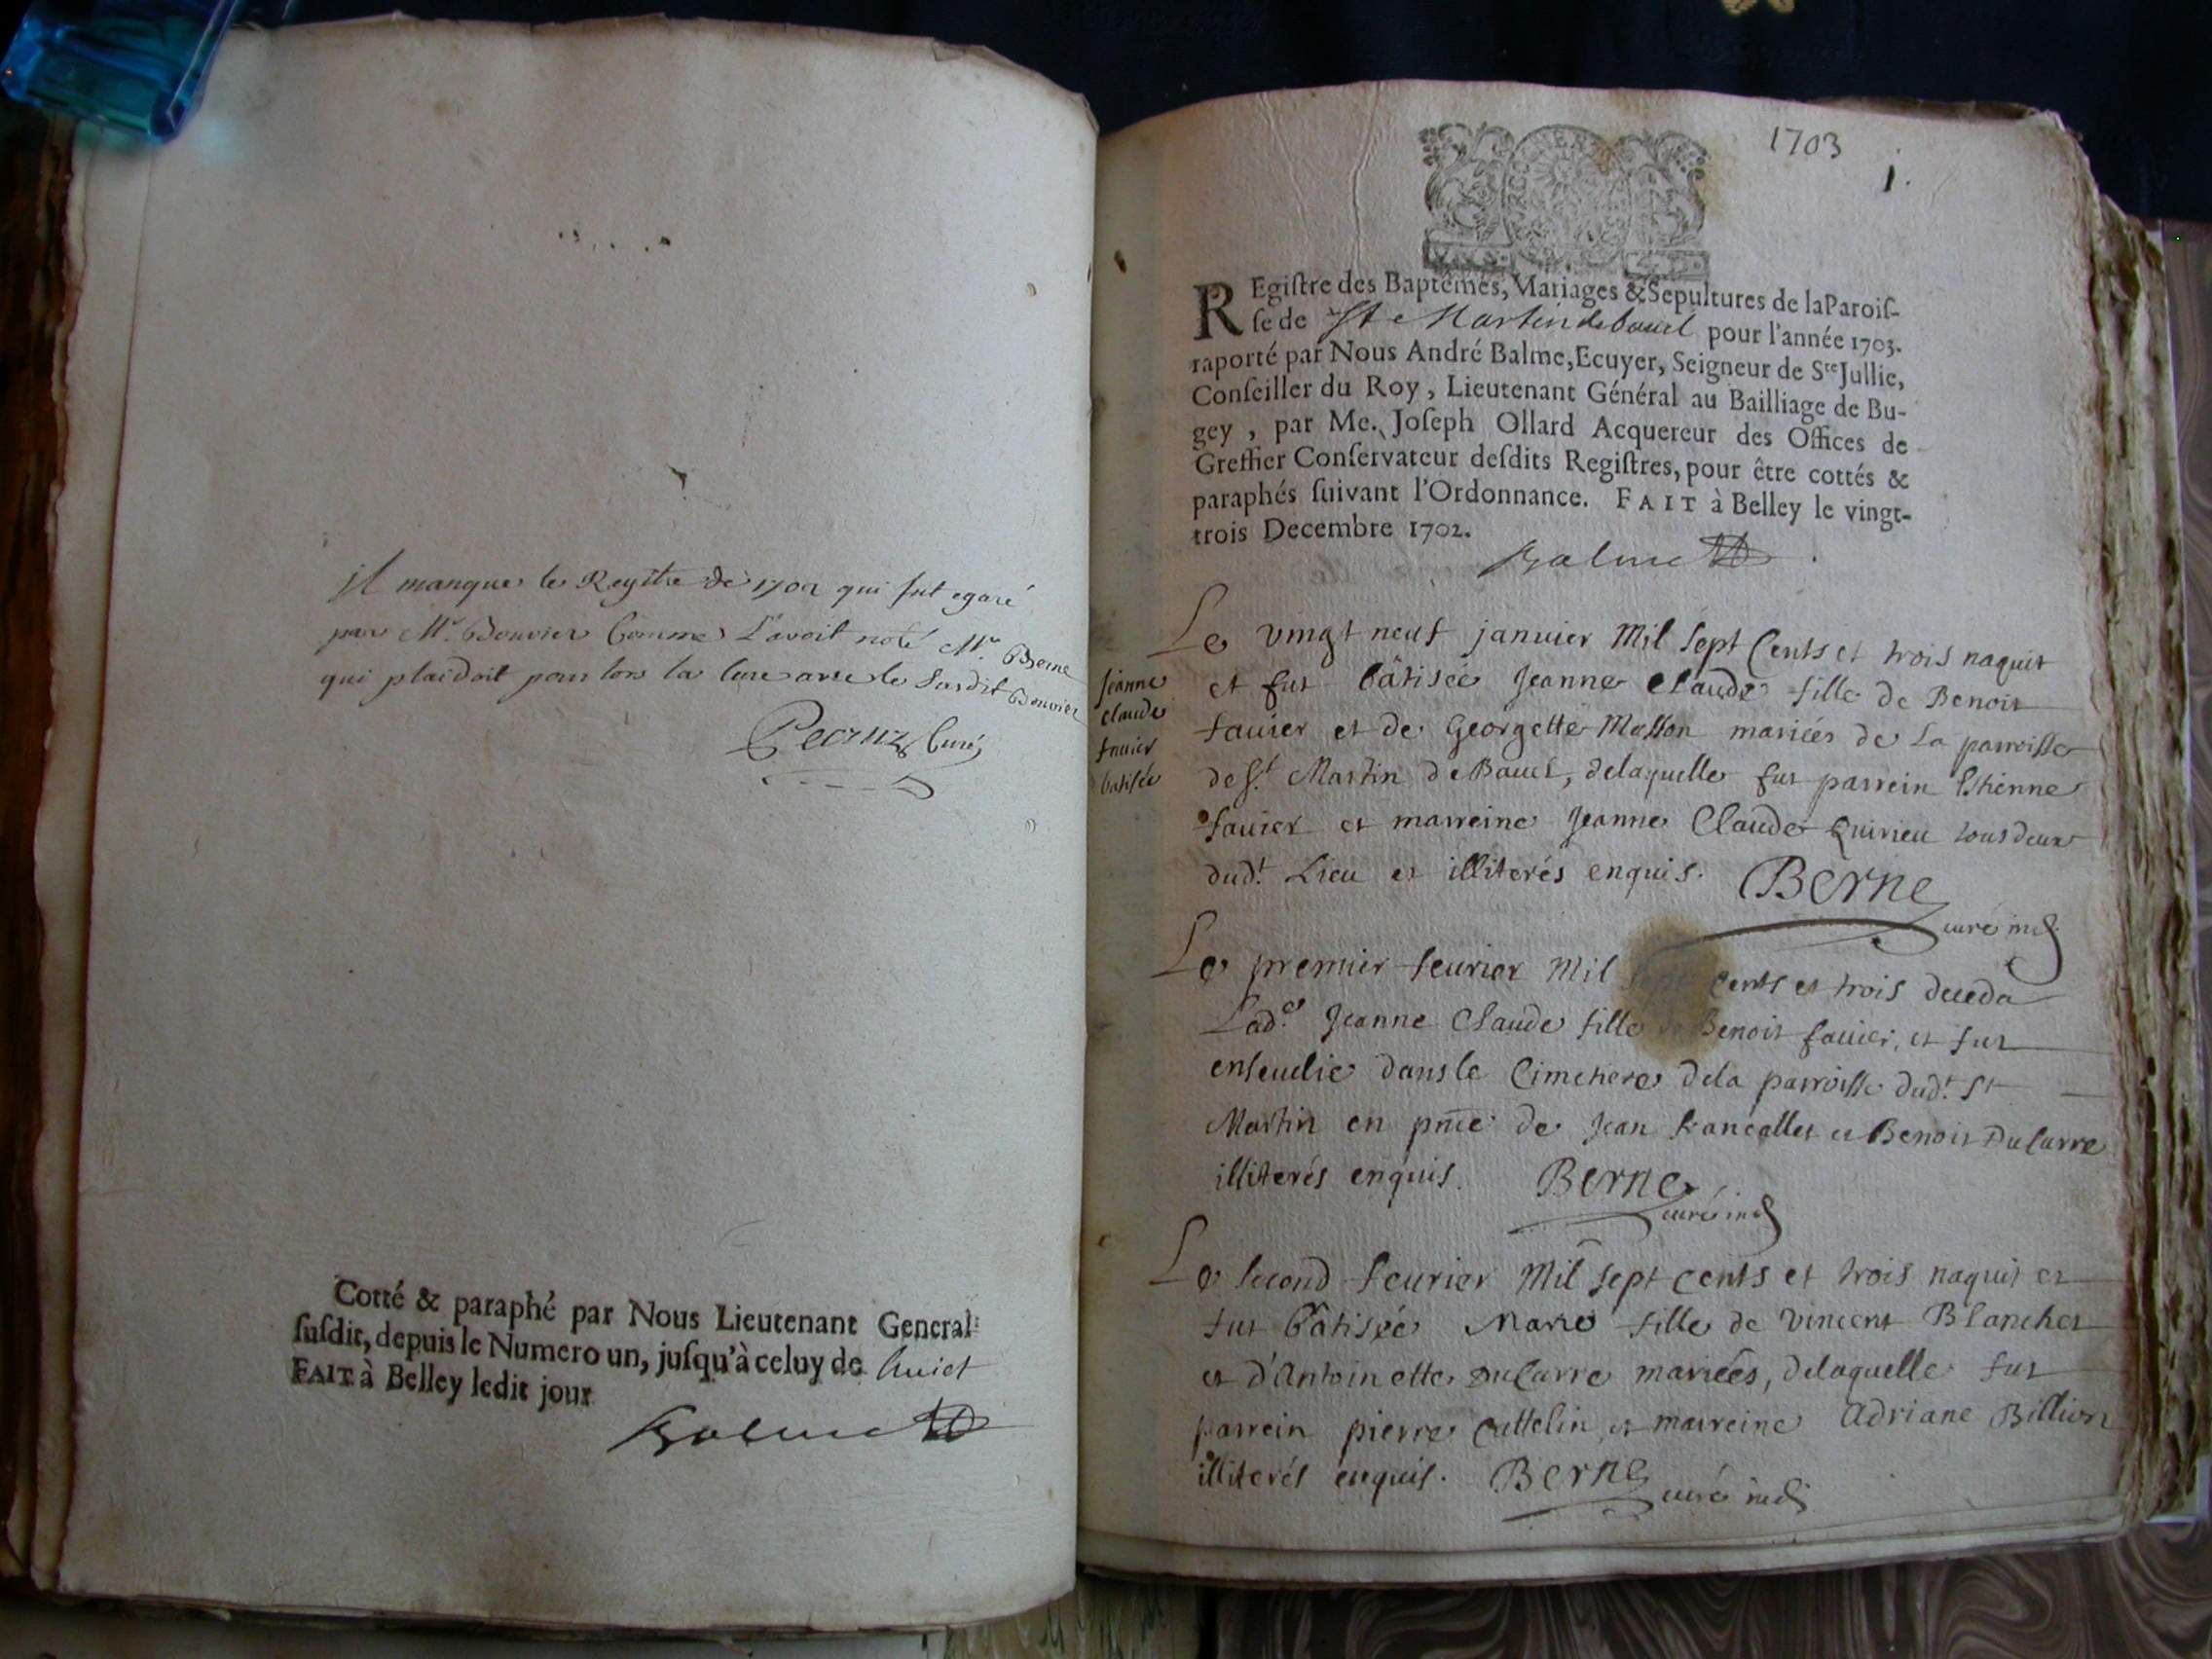 il manque le Regitre de 1702 qui fut egaré
par Mr. Bouvier Comme L'avoit noté Mr. Berne
qui plaidoit pour lors la Cure avec le Susdit Bouvier
Curé
Cotté & paraphé par Nous Lieutenant General
susdit, depuis le Numero un, jusqu'à celuy de huict
FAIT à Belley ledit jour
Balme
1703
1.
REgistre des Baptêmes, Mariages & Sepultures de la Parois-
se de St Martin de bavel pour l'année 1703.
raporté par Nous André Balme, Ecuyer, Seigneur de Ste Jullie,
Conseiller du Roy, Lieutenant Général au Bailliage de Bu-
gey, par Me. Joseph Ollard Acquereur des Offices de
Greffier Conservateur desdits Registres, pour être cottés &
paraphés suivant l'Ordonnance. FAIT à Belley le vingt-
trois Decembre 1702.
Balme
Jeanne
Claude
favier
batisée
Le vingt neuf janvier Mil sept Cents et trois naquit
et fut bâtisée Jeanne Claude fille de Benoit
favier et de Georgette Masson mariées de La parroisse
de St. Martin de Bavel, delaquelle fut parrein Ethienne
favier et marreine Jeanne Claude Quirieu tous deux
dudt. Lieu et illiterés enquis. Berne
curé ind
Le premier feurier Mil sept Cents et trois deceda
Lade. Jeanne Claude fille de Benoit favier, et fut
enseuelie dans le Cimetiere dela parroisse dudt. St
Martin en pnce de Jean francallet et Benoit Du Carre
illiterés enquis. Berne
curé ind
Le second feurier Mil sept cents et trois naquit et
fut bâtisée Marie fille de Vincent Blanchet
et d'Antoinette du Carre mariées, delaquelle fut
parrein pierre Cattelin et marreine Adriane Billion
illiterés enquis. Berne curé ind